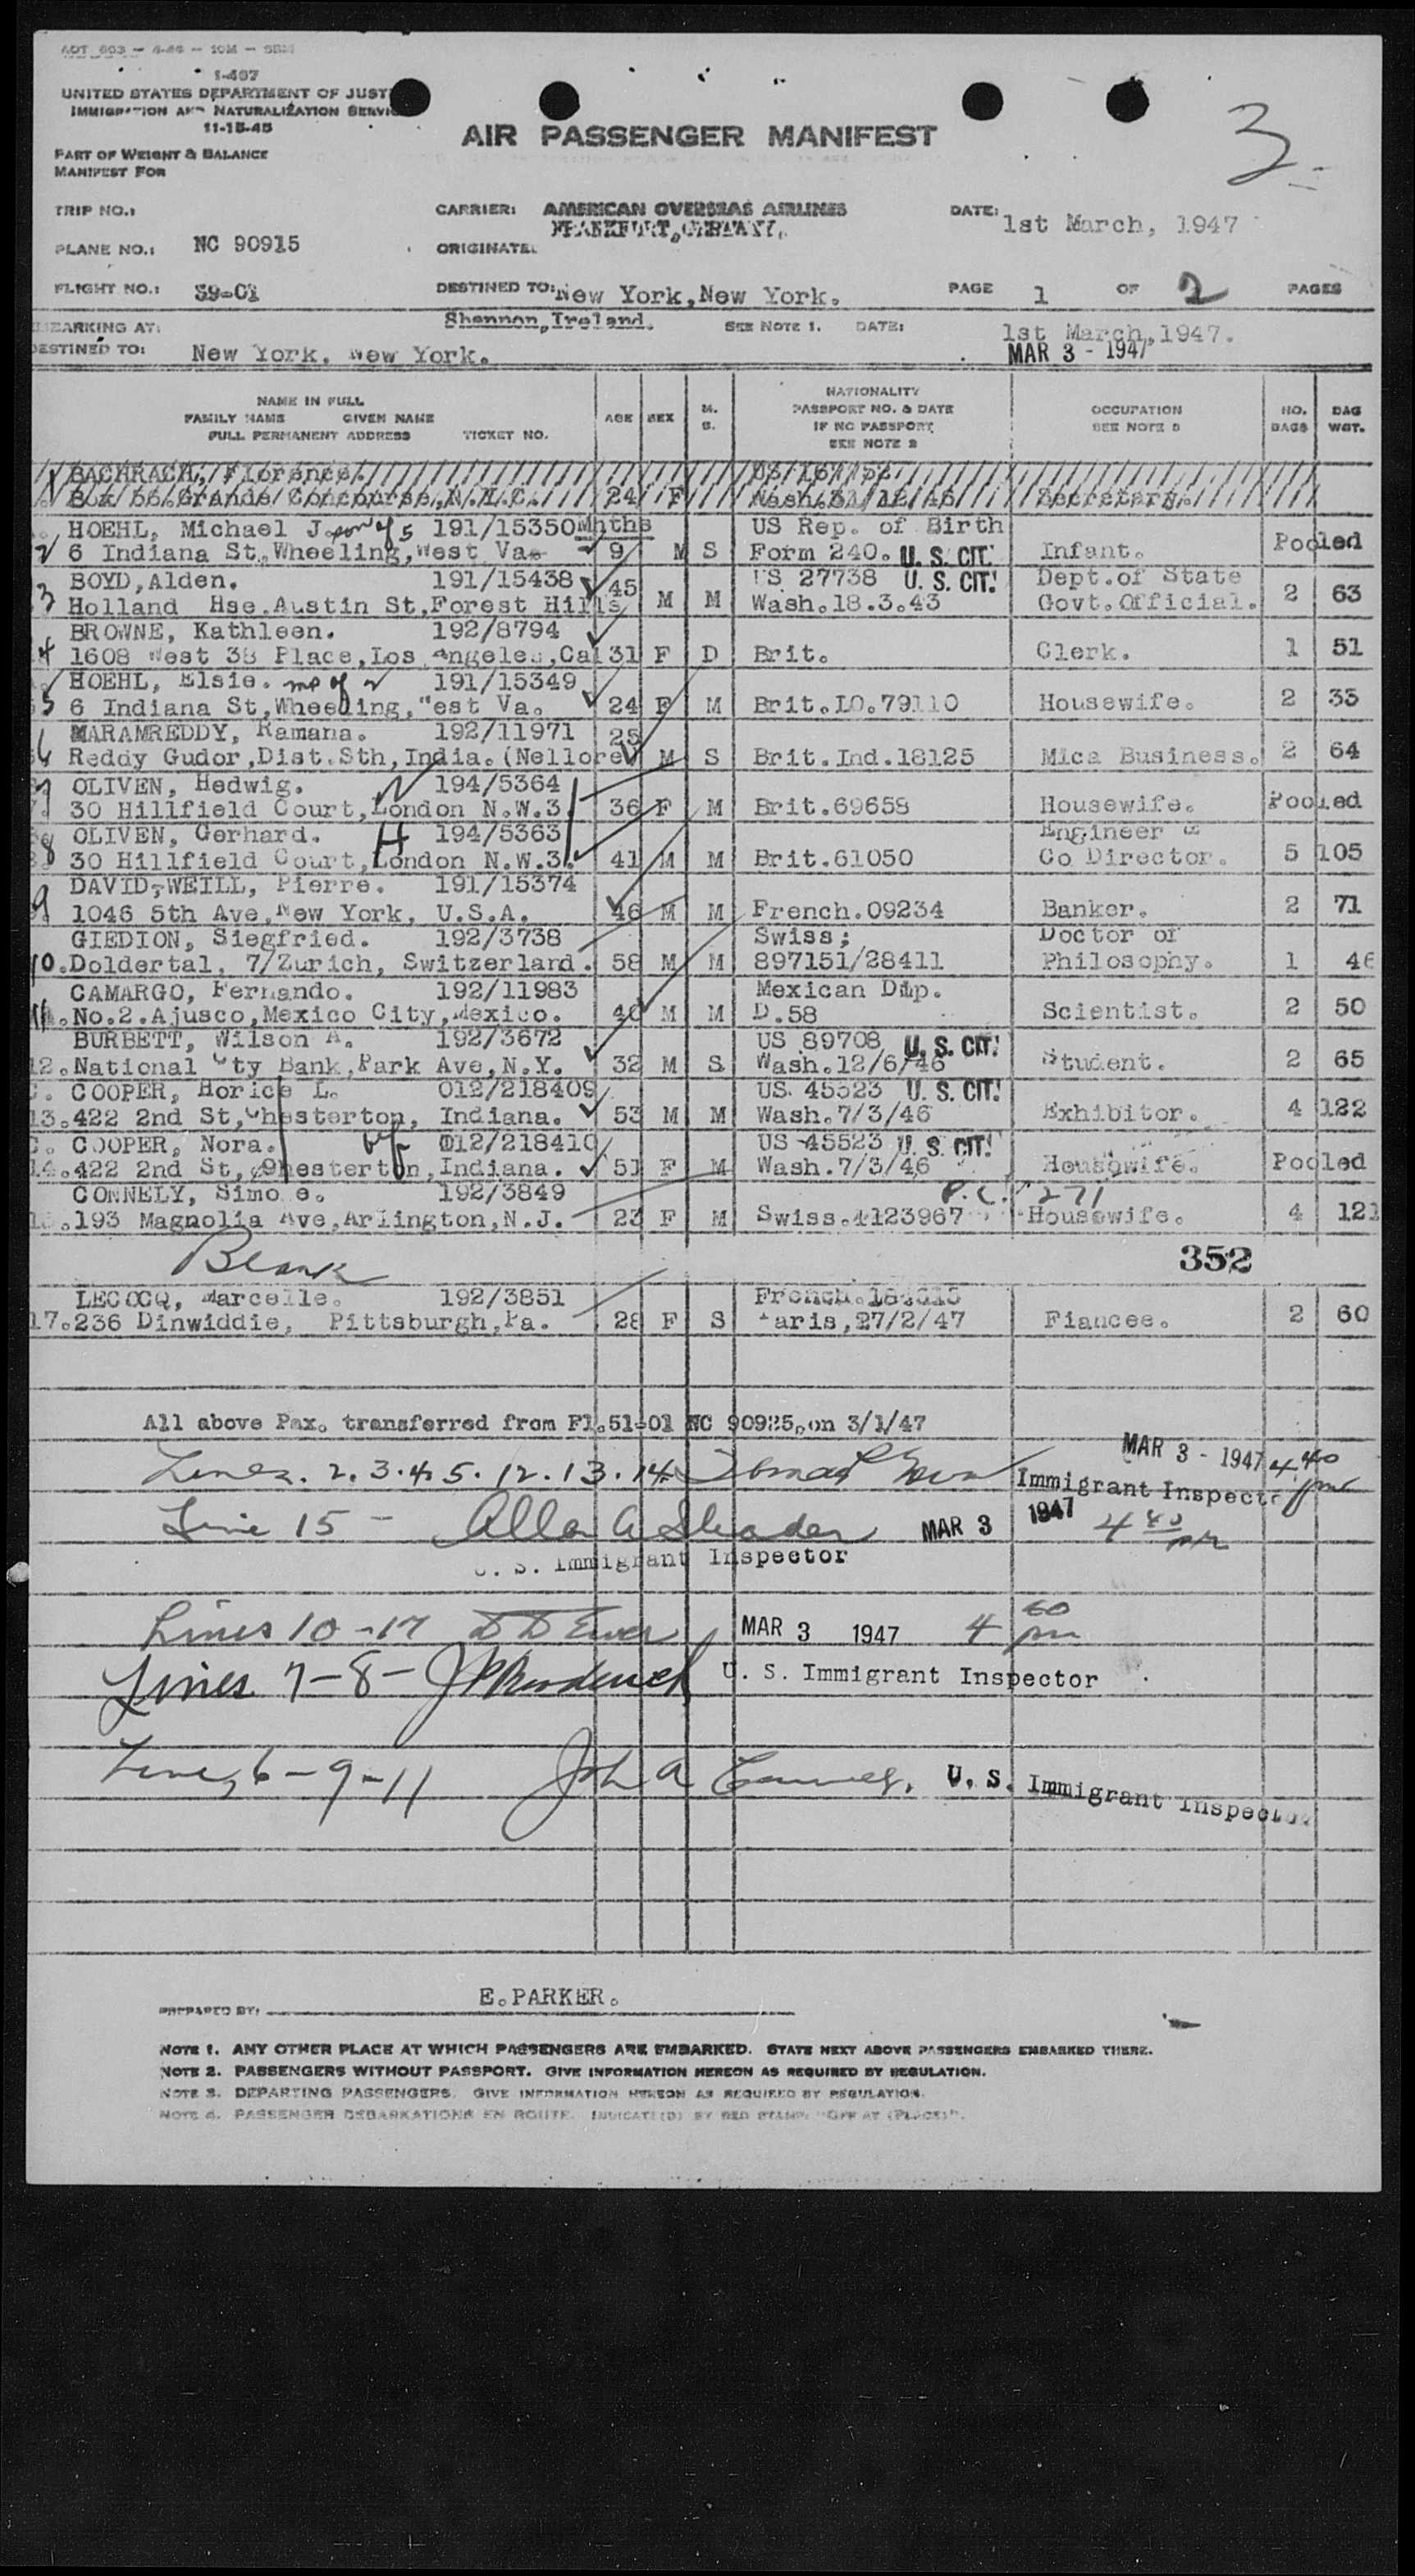 ACT 603 - 4-46 - 10M - SBM
I-467
UNITED STATES DEPARTMENT OF JUST
IMMIGRATION AND NATURALIZATION SERVIC
11-15-45
AIR PASSENGER MANIFEST
3
PART OF WEIGHT & BALANCE
MANIFEST FOR
TRIP NO.:
CARRIER: AMERICAN OVERSEAS AIRLINES
DATE: 1st March, 1947
PLANE NO.: NC 90915
ORIGINATE.
FLIGHT NO.: S9-01
DESTINED TO: New York, New York.
PAGE 1 OF 2 PAGES
EMBARKING AT: Shannon, Ireland. SEE NOTE 1. DATE: 1st March, 1947.
DESTINED TO: New York. New York. MAR 3 - 1947
NAME IN FULL
FAMILY NAME GIVEN NAME
FULL PERMANENT ADDRESS TICKET NO.
AGE SEX M. S.
NATIONALITY
PASSPORT NO. & DATE
IF NO PASSPORT
SEE NOTE 2
OCCUPATION
SEE NOTE 3
NO. BAGS
BAG WGT.
BACHRACH, Florence.
Box 66. Grande Concourse, N.Y.C. 24 F Wash.31/12/46 Secretary.
HOEHL, Michael J. son of 5 191/15350 Mnths US Rep. of Birth
2 6 Indiana St. Wheeling, West Va. 9 M S Form 240. U. S. CIT. Infant. Pooled
BOYD, Alden. 191/15438 45 US 27738 U. S. CIT. Dept. of State
3 Holland Hse. Austin St, Forest Hills M M Wash.18.3.43 Govt. Official. 2 63
BROWNE, Kathleen. 192/8794
4 1608 West 38 Place, Los Angeles, Cal 31 F D Brit. Clerk. 1 51
HOEHL, Elsie. mo of 2 191/15349
5 6 Indiana St, Wheeling, West Va. 24 F M Brit.LO.79110 Housewife. 2 33
MARAMREDDY, Ramana. 192/11971 25
6 Reddy Gudor, Dist. Sth, India. (Nellore) M S Brit. Ind. 18125 Mica Business. 2 64
OLIVEN, Hedwig. 194/5364
7 30 Hillfield Court, London N.W.3. 36 F M Brit.69658 Housewife. Pooled
OLIVEN, Gerhard. H 194/5363 Engineer &
8 30 Hillfield Court, London N.W.3. 41 M M Brit.61050 Co Director. 5 105
DAVID-WEILL, Pierre. 191/15374
9 1046 5th Ave, New York, U.S.A. 46 M M French.09234 Banker. 2 71
GIEDION, Siegfried. 192/3738 Swiss; Doctor of
10. Doldertal, 7/Zurich, Switzerland. 58 M M 897151/28411 Philosophy. 1 46
CAMARGO, Fernando. 192/11983 Mexican Dip.
11. No.2. Ajusco, Mexico City, Mexico. 40 M M D.58 Scientist. 2 50
BURBETT, Wilson A. 192/3672 US 89708 U. S. CIT.
12. National Cty Bank, Park Ave, N.Y. 32 M S Wash.12/6/46 Student. 2 65
COOPER, Horice L. 012/218409 US 45523 U. S. CIT.
13. 422 2nd St, Chesterton, Indiana. 53 M M Wash.7/3/46 Exhibitor. 4 122
COOPER, Nora. wf 012/218410 US 45523 U. S. CIT.
14. 422 2nd St, Chesterton, Indiana. 51 F M Wash.7/3/46 Housewife. Pooled
CONNELY, Simo e. 192/3849 P.C. 271
15. 193 Magnolia Ave, Arlington, N.J. 23 F M Swiss.1123967 Housewife. 4 121
Blank 352
LECOCQ, Marcelle. 192/3851 French.
17. 236 Dinwiddie, Pittsburgh, Pa. 28 F S Paris, 27/2/47 Fiancee. 2 60
All above Pax. transferred from Fl.51-01 NC 90925, on 3/1/47
Lines. 2. 3. 4. 5. 12. 13. 14. MAR 3 - 1947 4 40 pm
Immigrant Inspecto
Line 15 - Allen A MAR 3 1947 4 40 pm
U. S. Immigrant Inspector
Lines 10 - 17 MAR 3 1947 4 60 pm
Lines 7 - 8 - U. S. Immigrant Inspector
Lines 6 - 9 - 11 John A U. S. Immigrant Inspector
PREPARED BY: E. PARKER.
NOTE 1. ANY OTHER PLACE AT WHICH PASSENGERS ARE EMBARKED. STATE NEXT ABOVE PASSENGERS EMBARKED THERE.
NOTE 2. PASSENGERS WITHOUT PASSPORT. GIVE INFORMATION HEREON AS REQUIRED BY REGULATION.
NOTE 3. DEPARTING PASSENGERS. GIVE INFORMATION HEREON AS REQUIRED BY REGULATION.
NOTE 4. PASSENGER DEBARKATIONS EN ROUTE. INDICATE(D) BY RED STAMP: "OFF AT (PLACE)".